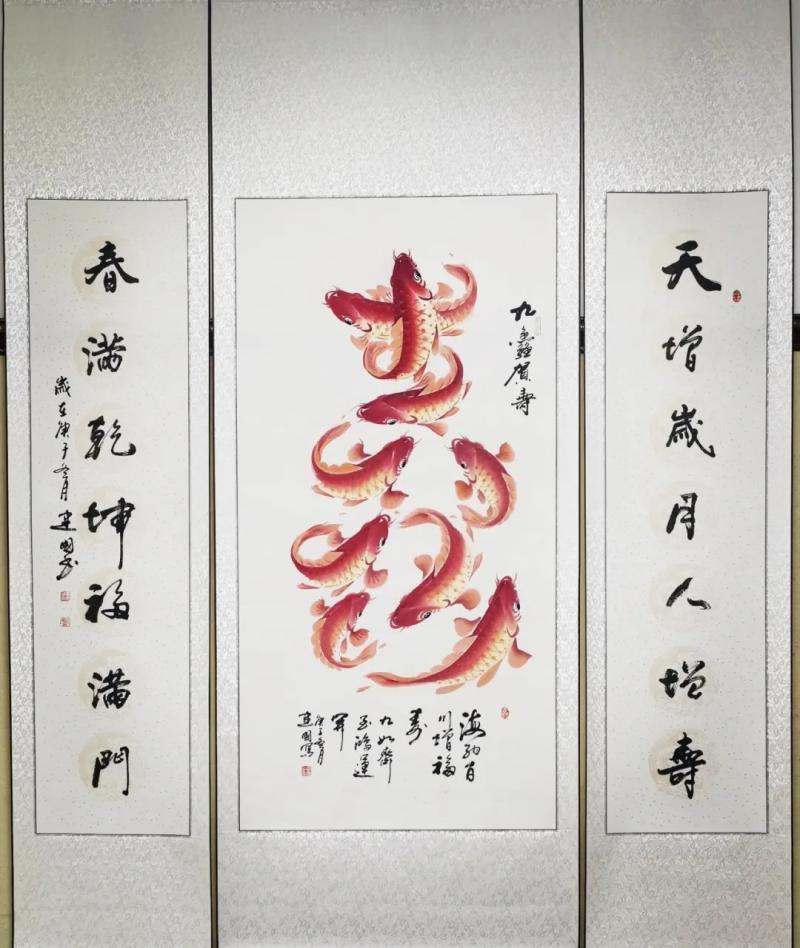 天增歲月人增壽
九 賀壽
海納百
川增福
壽
九如齊
至鴻運
開
庚子冬月
建國寫
春满乾坤福滿門
歲在庚子冬月 建國書